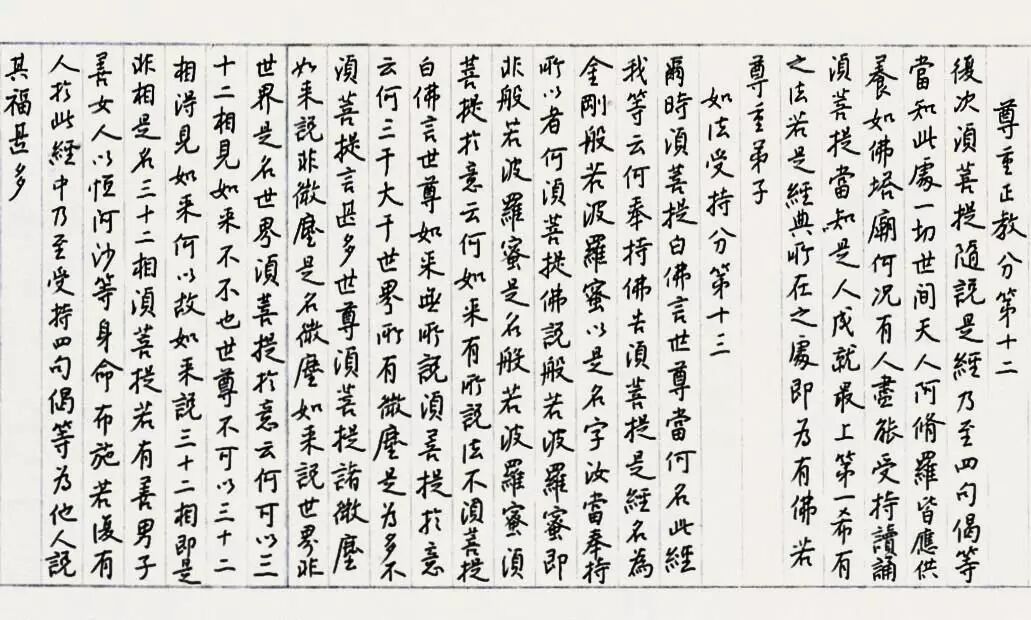 尊重正教分第十二
復次須菩提隨說是經乃至四句偈等
當知此處一切世间天人阿脩羅皆應供
養如佛塔廟何況有人盡能受持讀誦
須菩提當知是人成就最上第一希有
之法若是經典所在之處即為有佛若
尊重弟子
如法受持分第十三
爾時須菩提白佛言世尊當何名此經
我等云何奉持佛告須菩提是經名為
金剛般若波羅蜜以是名字汝當奉持
所以者何須菩提佛說般若波羅蜜即
非般若波羅蜜是名般若波羅蜜須
菩提於意云何如来有所說法不須菩提
白佛言世尊如来無所說須菩提於意
云何三千大千世界所有微塵是為多不
須菩提言甚多世尊須菩提諸微塵
如来說非微塵是名微塵如来說世界非
世界是名世界須菩提於意云何可以三
十二相見如来不不也世尊不可以三十二
相得見如来何以故如来說三十二相即是
非相是名三十二相須菩提若有善男子
善女人以恒河沙等身命布施若復有
人於此經中乃至受持四句偈等為他人説
其福甚多